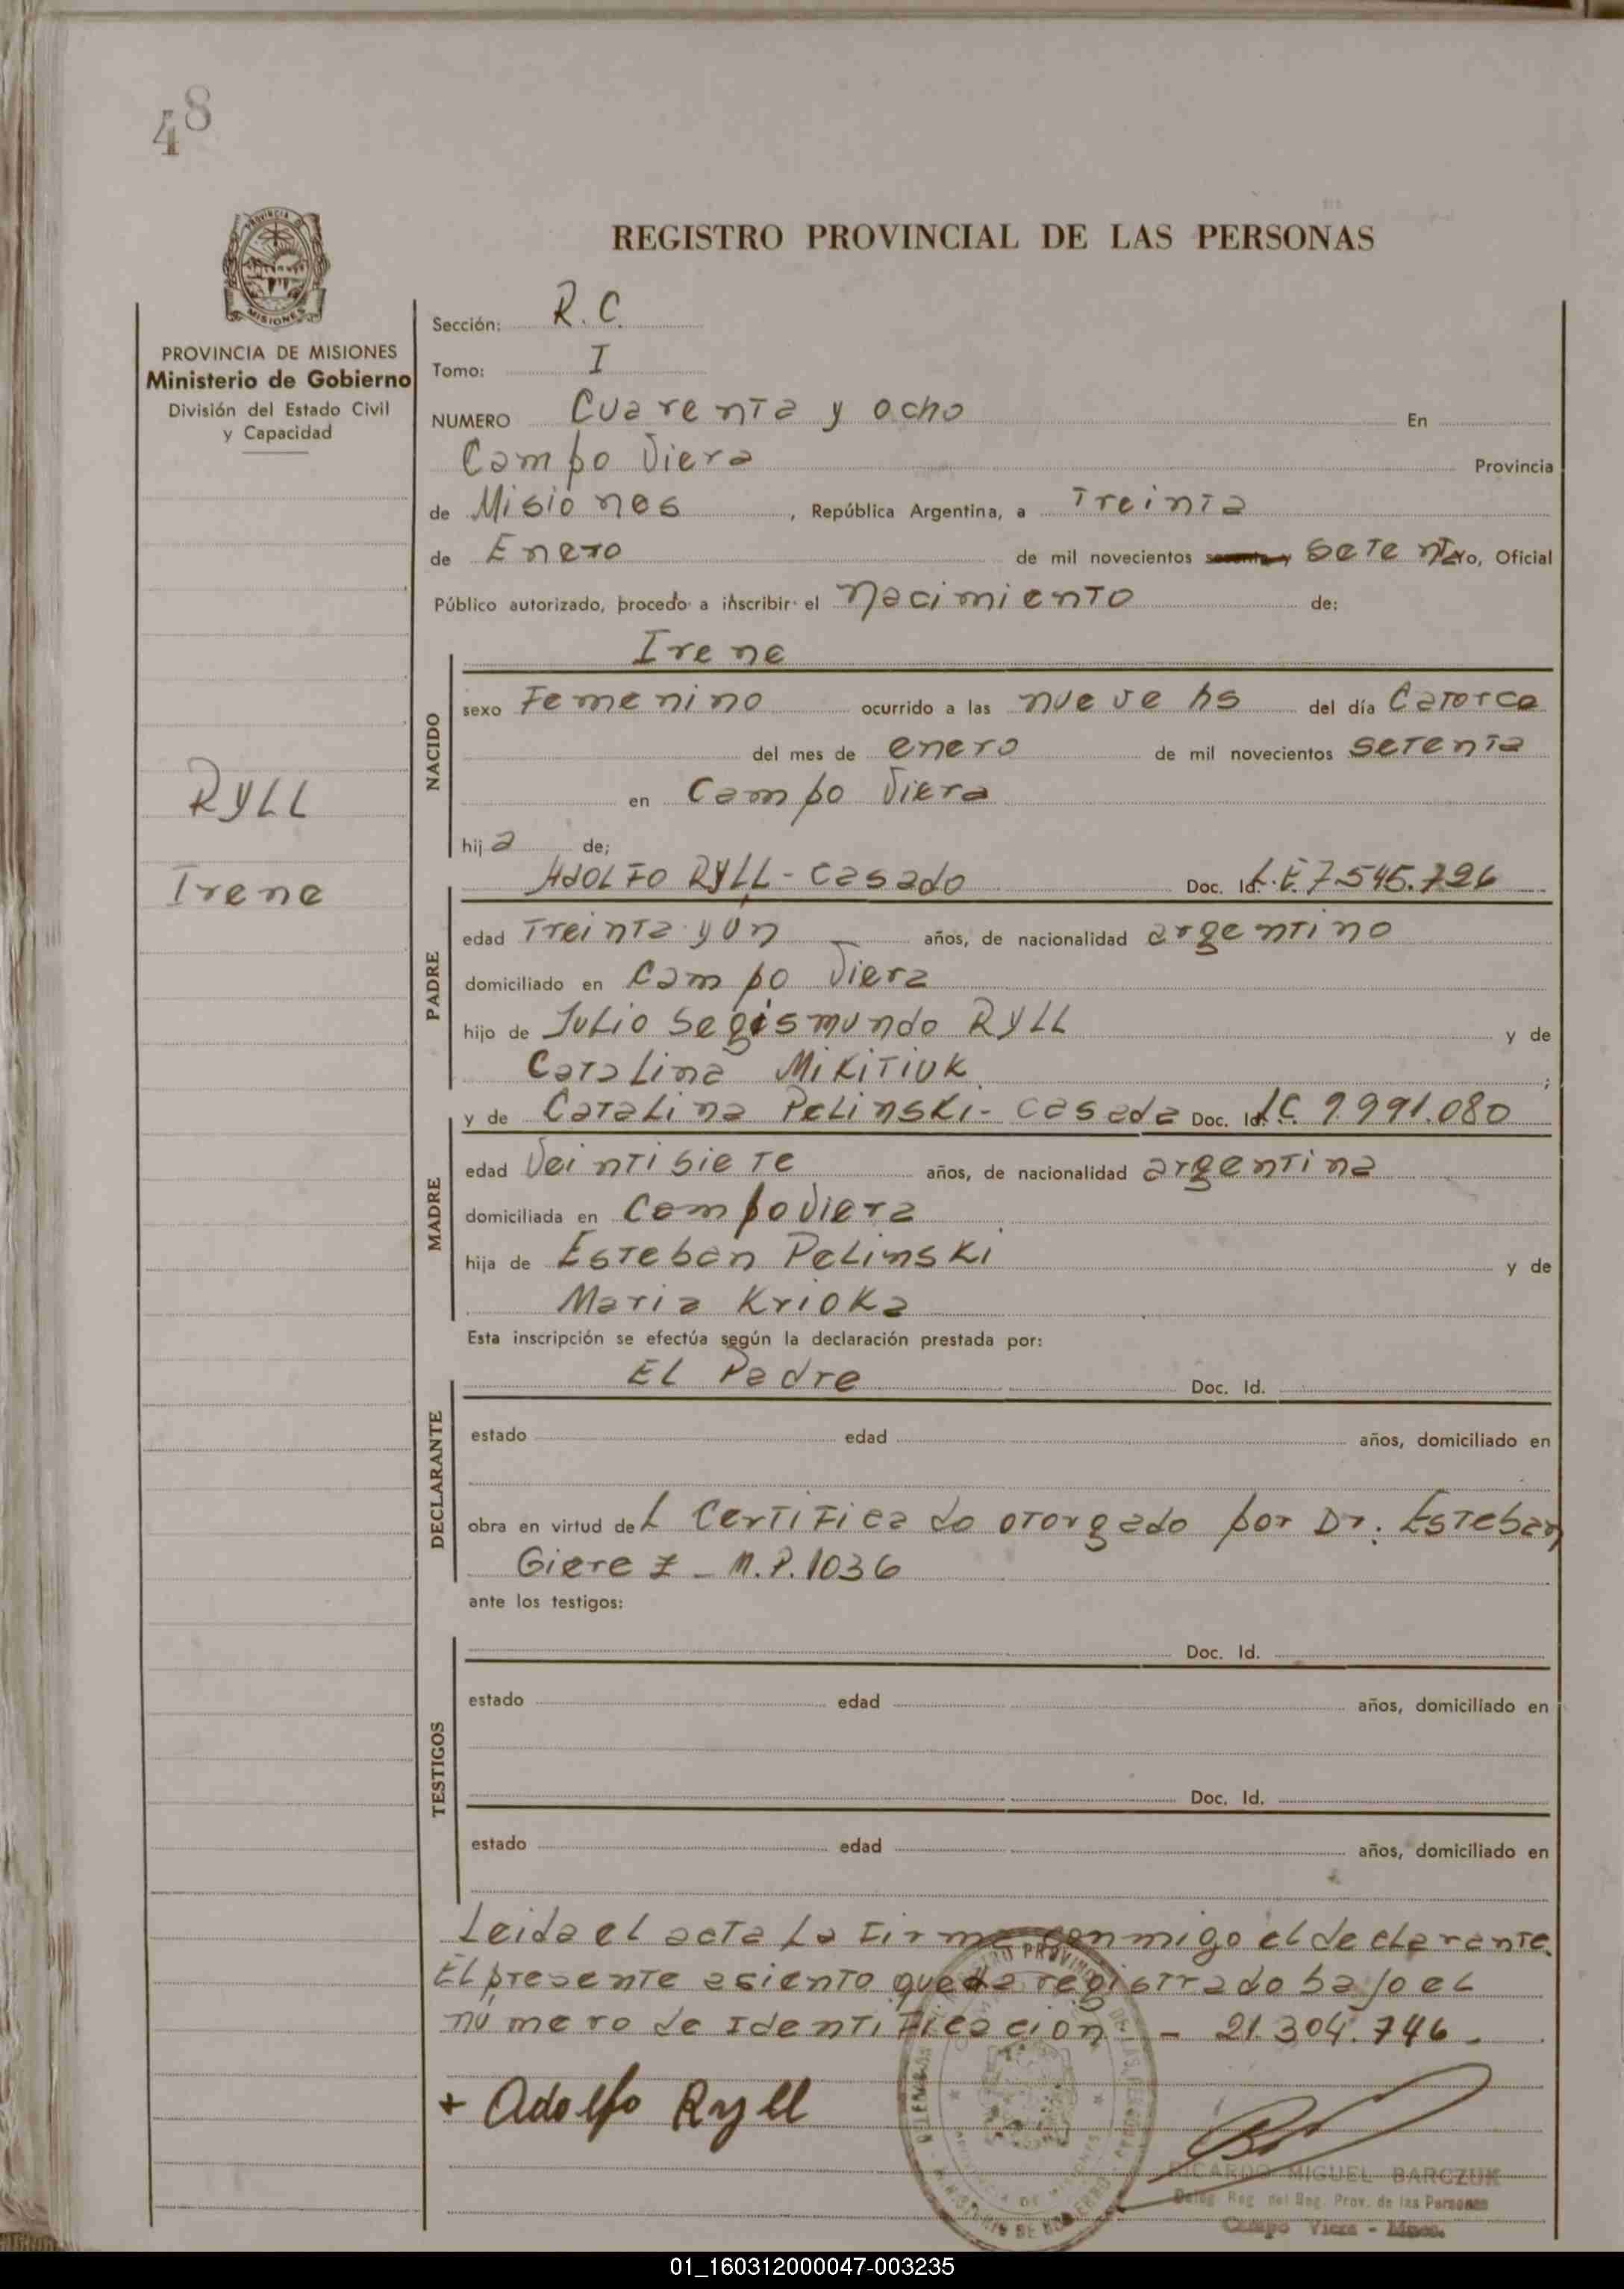 48
REGISTRO PROVINCIAL DE LAS PERSONAS
MISIONES
PROVINCIA DE MISIONES
Ministerio de Gobierno
División del Estado Civil
y Capacidad
RYLL
Irene
Sección: R.C.
Tomo: I
NUMERO Cuarenta y ocho En
Campo Viera Provincia
de Misiones, República Argentina, a Treinta
de Enero de mil novecientos setenta yo, Oficial
Público autorizado, procedo a inscribir el nacimiento de:
NACIDO
Irene
sexo Femenino ocurrido a las nueve hs del día Catorce
del mes de enero de mil novecientos setenta
en Campo Viera
hija de;
PADRE
Adolfo RYLL - casado Doc. Id. L.E. 7.545.726
edad Treinta y ún años, de nacionalidad argentino
domiciliado en Campo Viera
hijo de Julio Segismundo RYLL y de
Catalina Mikitiuk;
MADRE
y de Catalina Pelinski - casada Doc. Id. L.C. 9.991.080
edad Veintisiete años, de nacionalidad argentina
domiciliada en Campo Viera
hija de Esteban Pelinski y de
Maria Krioka
Esta inscripción se efectúa según la declaración prestada por:
DECLARANTE
El Padre Doc. Id.
estado edad años, domiciliado en
obra en virtud del Certificado otorgado por Dr. Esteban
Gierez - M.P. 1036
ante los testigos:
TESTIGOS
Doc. Id.
estado edad años, domiciliado en
Doc. Id.
estado edad años, domiciliado en
Leida el acta la firma conmigo el declarante.
El presente asiento queda registrado bajo el
número de Identificación - 21.304.746.
+ Adolfo Ryll
RICARDO MIGUEL BARCZUK
Deleg. Reg. del Reg. Prov. de las Personas
Campo Viera - Mnes.
01_160312000047-003235